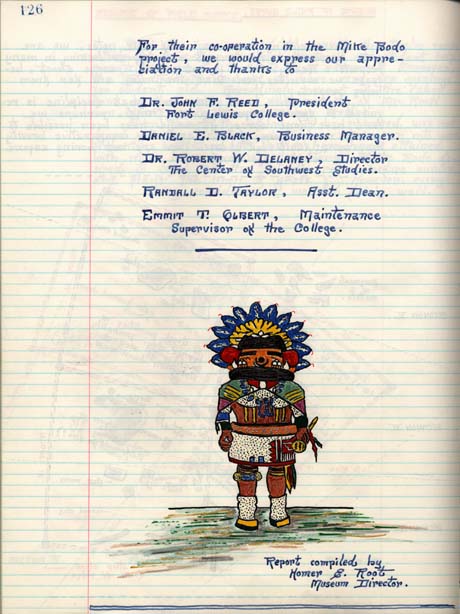 126
For their co-operation in the Mike Bodo
project, we would express our appre-
ciation and thanks to
DR. JOHN F. REED, President
Fort Lewis College.
DANIEL E. BLACK, Business Manager.
DR. ROBERT W. DELANEY, Director
The Center of Southwest Studies.
RANDALL D. TAYLOR, Asst. Dean.
EMMIT T. OLBERT, Maintenance
Supervisor of the College.
Report compiled by
Homer E. Root
Museum Director.